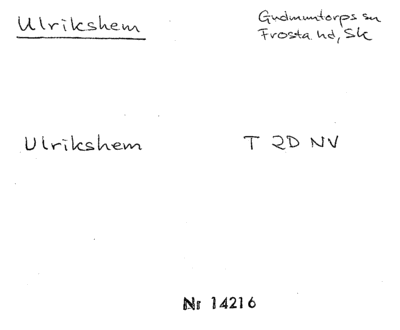 Ulrikshem
Gudmuntorps sn
Frosta hd, Sk
Ulrikshem
T 2D NV
Nr 14216